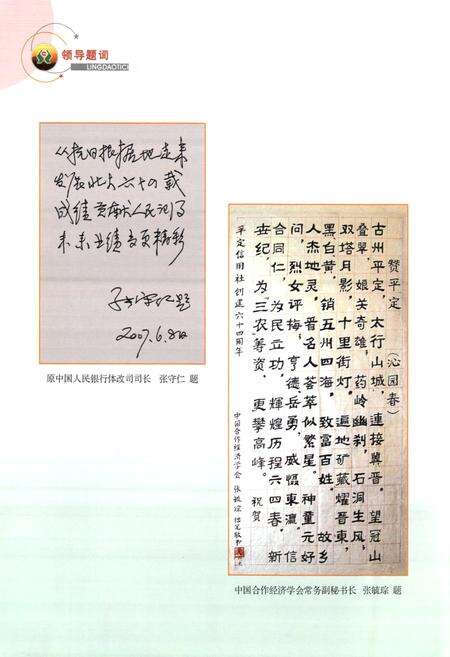 领导题词
LINGDAOTICI
从抗日根据地走来
发展壮大六十四载
成绩贡献人民记得
未来业绩竟更精彩
张守仁题
2007.6.8日
原中国人民银行体改司司长 张守仁 题
赞平定
(沁园春)
古州平定,太行山城,连接冀晋,望冠山
叠翠,娘关奇雄,药岭幽刹,石洞生风,
双塔月影,十里街灯,遍地矿藏耀晋东,
黑白黄,销五州四海,致富百姓。故乡
人杰地灵,晋名人荟萃似繁星,神童元好
问,烈女评梅,亨德岳勇,威慑东瀛,信
合同仁,为民立功,辉煌历程六四春,新
世纪,为三农筹资,更攀高峰。祝贺
平定信用社创建六十四周年
中国合作经济学会 张毓琮
中国合作经济学会常务副秘书长 张毓琮 题